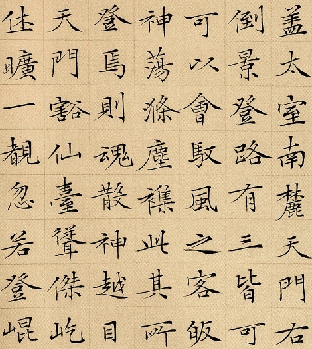 盖太室南麓天門右
倒景登路有三皆可
可以會馭風之客皈
神蕩滌塵襟此其所
登焉則魂散神越目
天門豁仙臺聳傑屹
休曠一觀忽若登崐